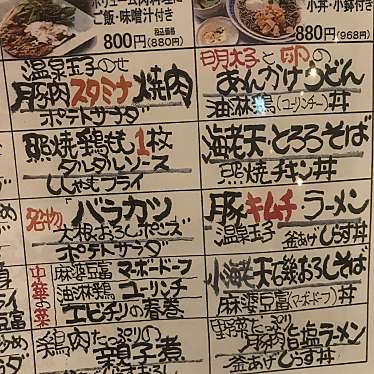 ボリューム肉料理に
ご飯・味噌汁付き
800円(880円)
税込価格
小丼・小鉢付き
880円(968円)
温泉玉子のせ
豚肉スタミナ焼肉
ポテトサラダ
明太子と卵の
あんかけうどん
油淋鶏(ユーリンチー)丼
照焼鶏もも1枚
タルタルソース
ししゃもフライ
海老天・とろろそば
照焼チキン丼
名物バラカツ
大根おろしポンズ
ポテトサラダ
豚キムチラーメン
温泉玉子
釜あげしらす丼
中華の菜
麻婆豆腐 マーボードーフ
油淋鶏 ユーリンチ
エビチリの春巻
小海老天石緞おろしそば
麻婆豆腐(マーボードーフ)丼
鶏肉たっぷりの
親子煮
野菜たっぷり
豚肉塩ラーメン
釜あげしらす丼